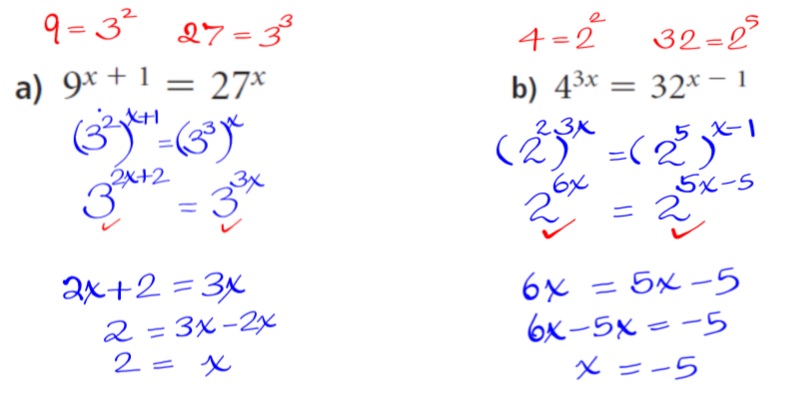 9 = 3² 27 = 3³
a) 9ˣ ⁺ ¹ = 27ˣ
(3²)ˣ⁺¹ = (3³)ˣ
3²ˣ⁺² = 3³ˣ
2x+2 = 3x
2 = 3x-2x
2 = x
4 = 2² 32 = 2⁵
b) 4³ˣ = 32ˣ ⁻ ¹
(2²)³ˣ = (2⁵)ˣ⁻¹
2⁶ˣ = 2⁵ˣ⁻⁵
6x = 5x-5
6x-5x = -5
x = -5